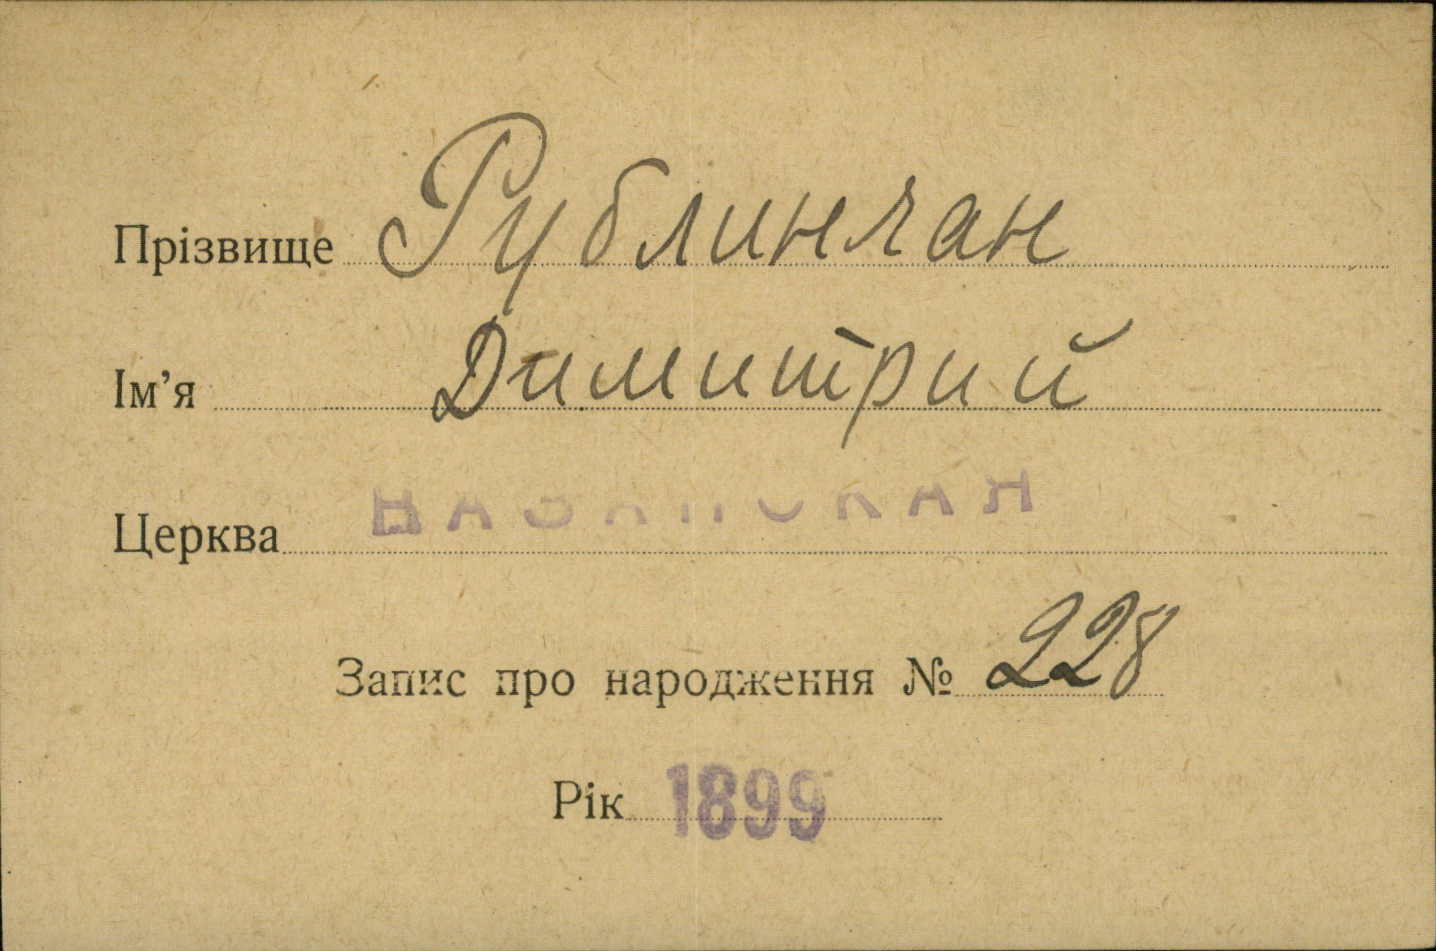 Прізвище Рублинчан
Ім’я Димитрий
Церква
Запис про народження № 228
Рік 1899